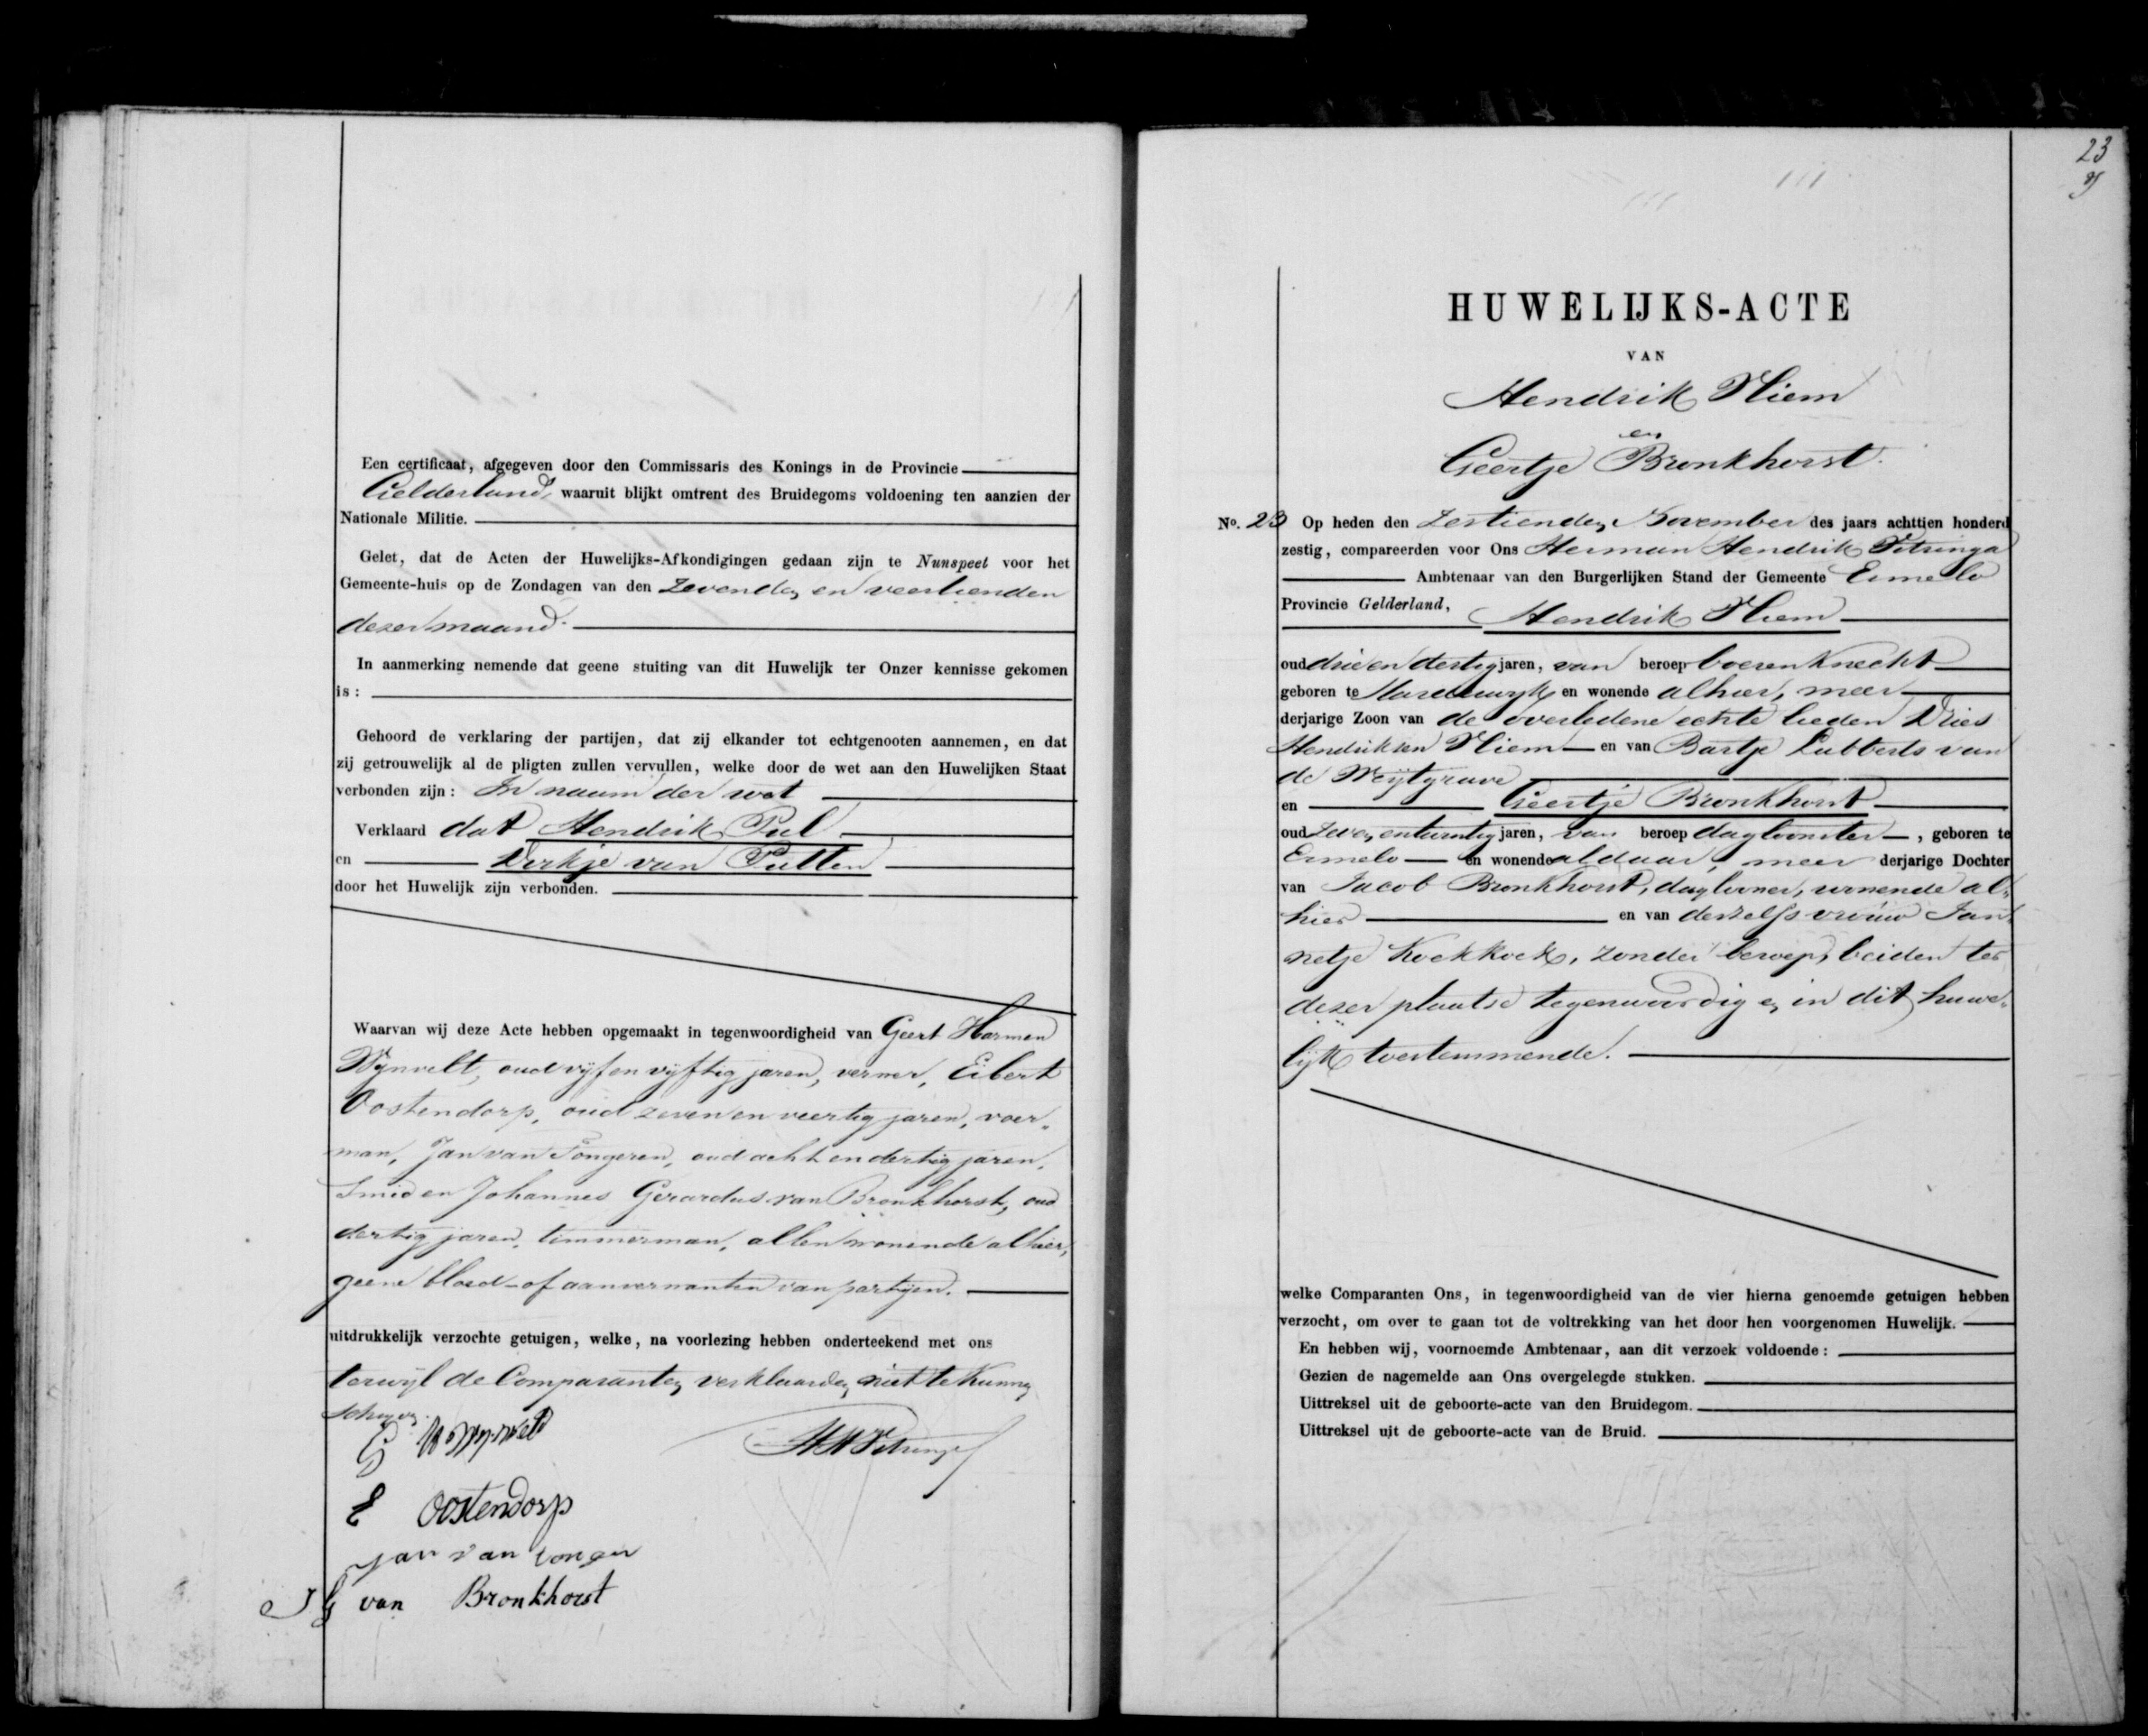 Een certificaat, afgegeven door den Commissaris des Konings in de Provincie
Gelderland, waaruit blijkt omtrent des Bruidegoms voldoening ten aanzien der
Nationale Militie.
Gelet, dat de Acten der Huwelijks-Afkondigingen gedaan zijn te Nunspeet voor het
Gemeente-huis op de Zondagen van den Zevenden en veertienden
dezer maand.
In aanmerking nemende dat geene stuiting van dit Huwelijk ter Onzer kennisse gekomen
is:
Gehoord de verklaring der partijen, dat zij elkander tot echtgenooten aannemen, en dat
zij getrouwelijk al de pligten zullen vervullen, welke door de wet aan den Huwelijken Staat
verbonden zijn: In naam der wet
Verklaard dat Hendrik Pul
en Dirkje van Putten
door het Huwelijk zijn verbonden.
Waarvan wij deze Acte hebben opgemaakt in tegenwoordigheid van Geert Harmen
Wijnvelt, oud vijf en vijftig jaren, verwer, Eibert
Oostendorp, oud zeven en veertig jaren, voer„
man, Jan van Tongeren, oud acht en dertig jaren,
Smid en Johannes Gerardus van Bronkhorst, oud
dertig jaren, timmerman, allen wonende alhier,
geene bloed- of aanverwanten van partijen.
uitdrukkelijk verzochte getuigen, welke, na voorlezing hebben onderteekend met ons
terwijl de Comparanten verklaarden niet te kunnen
schrijven.
E Oostendorp
Jan van Tonger
J G van Bronkhorst
23
HUWELIJKS-ACTE
VAN
Hendrik Vliem
en
Geertje Bronkhorst.
No. 23 Op heden den Zestienden November des jaars achttien honderd
zestig, compareerden voor Ons Herman Hendrik Vitringa
Ambtenaar van den Burgerlijken Stand der Gemeente Ermelo
Provincie Gelderland, Hendrik Vliem
oud drie en dertig jaren, van beroep boerenknecht
geboren te Harderwijk en wonende alhier, meer
derjarige Zoon van de overledene echte lieden Dries
Hendriksen Vliem en van Bartje Lubberts van
de Weijtgrave
en Geertje Bronkhorst
oud Zeven en twintig jaren, van beroep dagloonster, geboren te
Ermelo en wonende aldaar, meer derjarige Dochter
van Jacob Bronkhorst, daglooner, wonende al„
hier en van deszelfs vrouw Jan„
netje Koekkoek, zonder beroep, beiden ter
dezer plaatse tegenwoordig en in dit huwe„
lijk toestemmende.
welke Comparanten Ons, in tegenwoordigheid van de vier hierna genoemde getuigen hebben
verzocht, om over te gaan tot de voltrekking van het door hen voorgenomen Huwelijk.
En hebben wij, voornoemde Ambtenaar, aan dit verzoek voldoende:
Gezien de nagemelde aan Ons overgelegde stukken.
Uittreksel uit de geboorte-acte van den Bruidegom.
Uittreksel uit de geboorte-acte van de Bruid.